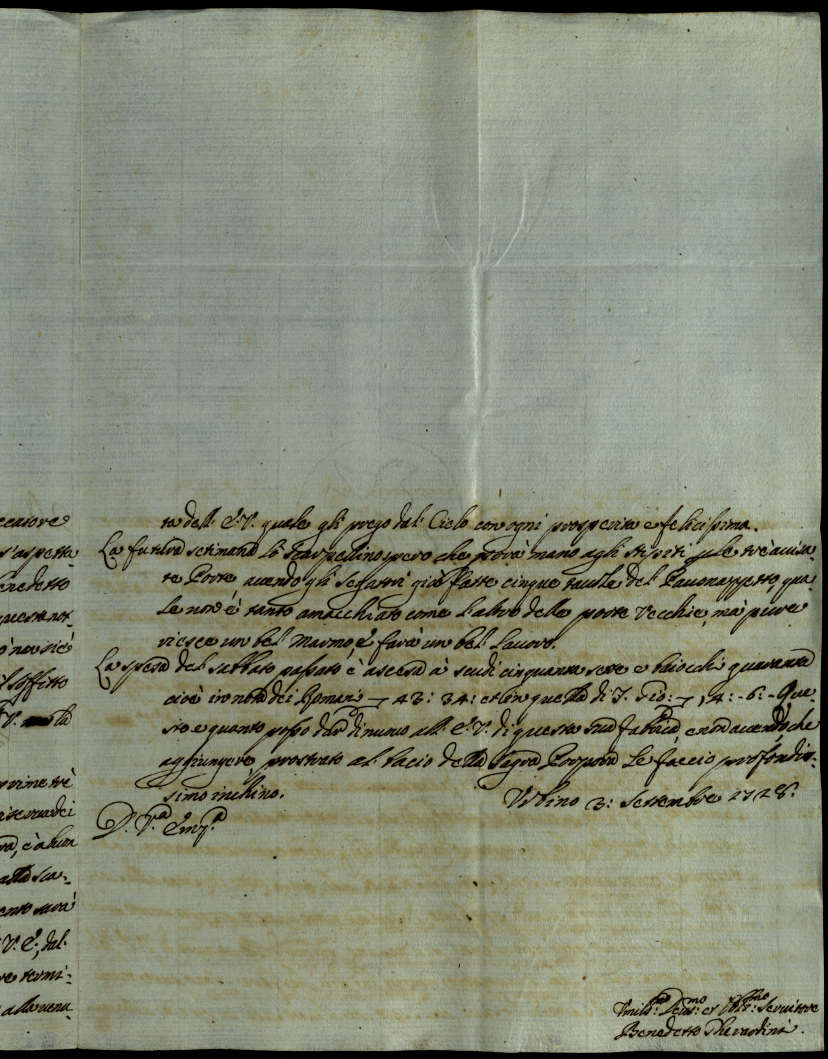 ccatore
s'aspetta
inedetto
queste not-
ò non si è
l soffitto
V. la
prime trè
riserva dei
và, è a hora
alla sca-
ento sarà
V. E., dal-
re termi-
alla venu-
ta dell' E. V. quale gli prego dal Cielo con ogni prosperità e felicissima.
La futura setimana lo scarpellino spero che porrà mano agli stipiti p le trè avisa-
te Porte avendo gli Segatori già fatte cinque tavole del Pavonazzetto, qua-
le non è tanto amacchiato come l'altro delle porte Vecchie, mà pure
riesce un bel Marmo e farà un bel lavoro.
La spesa del Sabbato passato è ascesa à scudi cinquanta sette e baiocchi quaranta
cioè in nota dei Romani 43: 34: et in quella di S. 14: -6: - Que-
sto e quanto posso dar di nuovo all' E. V. di questa sua fabrica, e non avendo che
agiungere prostrato al bacio della Sagra Porpora Le faccio profondis-
simo inchino.
Urbino 3: Settembre 1728:
D. V.ra Em.za
Umilis.mo Dev.mo et Obb.mo Servitore
Benedetto